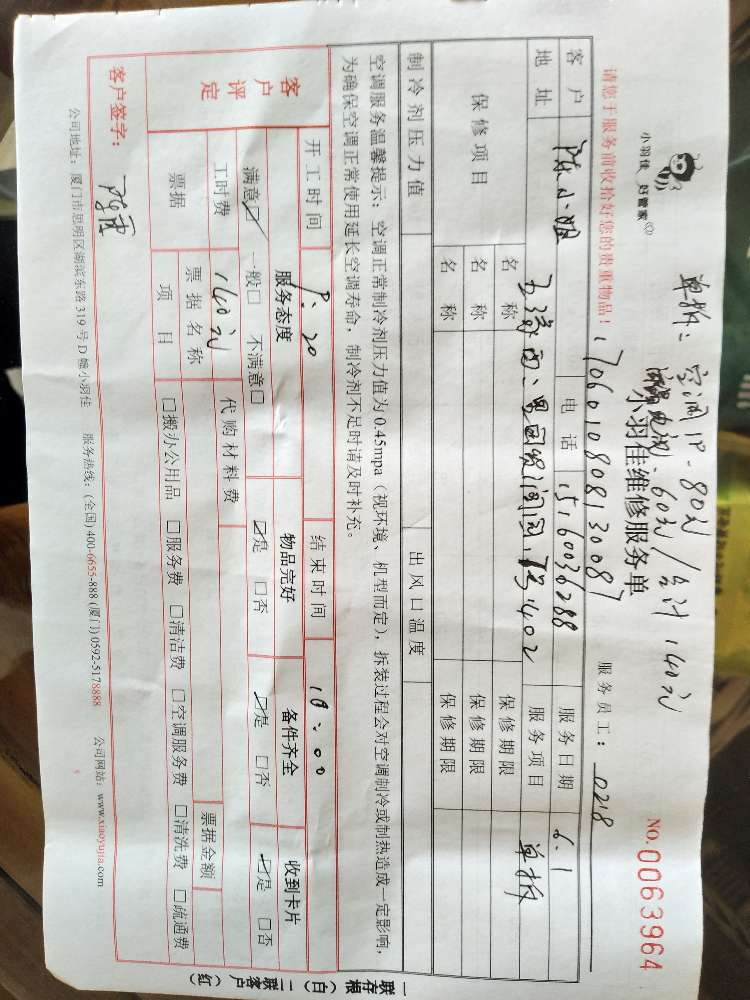 小羽佳 好管家
单拆：空调1P-80元
电视：60元/合计140元
小羽佳维修服务单
NO.0063964
1706010808130087
请您于服务前收拾好您的贵重物品！
服务员工：0218
客户 陈小姐 电话 15160036288 服务日期 6.1
地址 402 服务项目 单拆
保修项目 名称 保修期限
名称 保修期限
名称 保修期限
制冷剂压力值 出风口温度
空调服务温馨提示：空调正常制冷剂压力值为0.45mpa（视环境、机型而定），拆装过程会对空调制冷或制热造成一定影响，
为确保空调正常使用延长空调寿命，制冷剂不足时请及时补充。
开工时间 9：20 结束时间 10：00
客户评定 服务态度 物品完好 备件齐全 收到卡片
满意☑ 一般□ 不满意□ ☑是 □否 ☑是 □否 ☑是 □否
工时费 140元 代购材料费
票据 票据名称 票据金额
项目 □搬办公用品 □服务费 □清洁费 □空调服务费 □清洗费 □疏通费
客户签字：
公司地址：厦门市思明区湖滨东路319号D幢小羽佳 服务热线：(全国) 400-6655-888 (厦门) 0592-5178888 公司网站：www.xiaoyujia.com
一联存根（白）二联客户（红）